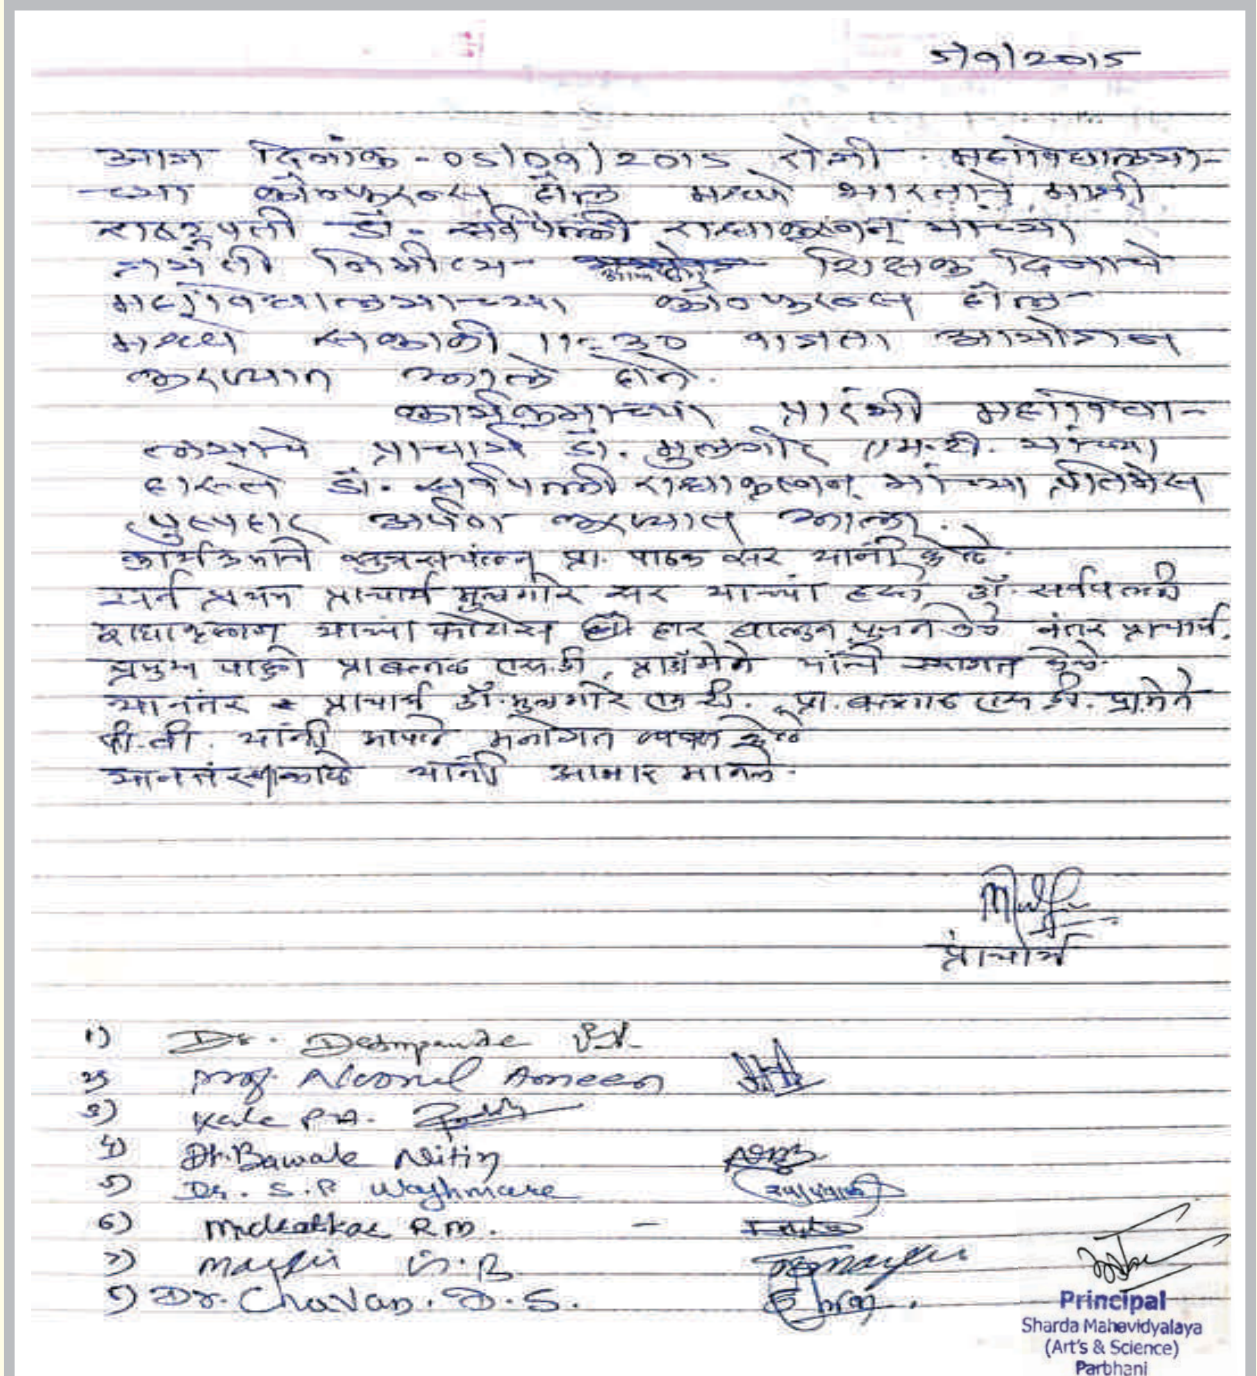 5/9/2015
आज दिनांक - 05/09/2015 रोजी महाविद्यालया-
च्या कॉन्फरन्स हॉल मध्ये भारताचे माजी
राष्ट्रपती डॉ. सर्वपल्ली राधाकृष्णन् यांच्या
जयंती निमीत्य- शिक्षक दिनाचे
महाविद्यालयाच्या कॉन्फरन्स हॉल-
मध्ये सकाळी 11=30 वाजता आयोजन
करण्यात आले होते.
कार्यक्रमाच्या प्रारंभी महाविद्या-
लयाचे प्राचार्य डॉ. मुलगीर एम.टी. यांच्या
हास्ते डॉ. सर्वपल्ली राधाकृष्णन् यांच्या प्रतिमेस
पुष्पहार अर्पण करण्यात आला.
कार्यक्रमाचे सुत्रसचंलन प्रा. पाठक सर यांनी केले.
सर्व प्रथम प्राचार्य मुलगीर सर यांच्या हस्ते डॉ. सर्वपल्ली
राधाकृष्णन यांच्या फोटोस हार घालुन पुजन केले नंतर प्राचार्य,
प्रमुख पाहुणे एस.डी. यांचे स्वागत केले.
यानंतर प्राचार्य डॉ. मुलगीर एम.टी. प्रा. एस.डी.
पी.बी. यांनी आपले मनोगत व्यक्त केले
यांनी आभार मानले.
प्राचार्य
1) Dr. Deshpande
2) Prof. Ameen
3) Kale P.A.
4) Dr. Bawale Nitin
5) Dr. S.P. Waghmare
6) R.M. -
7)
Dr. Chavan. D. S.
Principal
Sharda Mahavidyalaya
(Art's & Science)
Parbhani